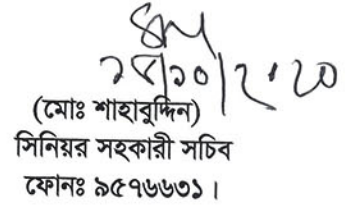 ২৮/১০/২০২০
(মোঃ শাহাবুদ্দিন)
সিনিয়র সহকারী সচিব
ফোনঃ ৯৫৭৬৬৩১।